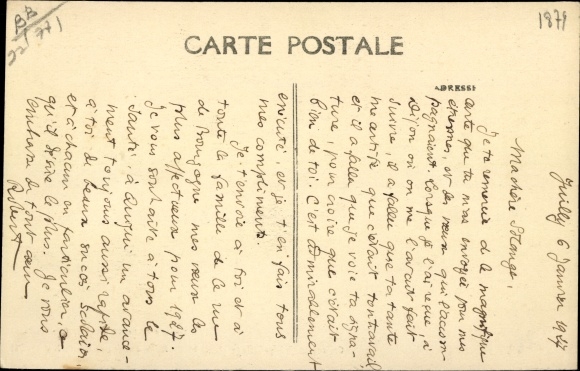 BB
22/771
1879
CARTE POSTALE
ADRESSE
Juilly 6 Janvier 1927
Ma chère Solange,
Je te remercie de la magnifique
carte que tu m'as envoyée pour mes
étrennes, et des vœux qui l'accom-
pagnaient. Lorsque je l'ai reçue à
Dijon où on me l'avait fait
suivre, il a fallu que ta tante
me certifie que c'était ton travail
et il a fallu que je voie ta signa-
ture, pour croire que c'était
bien de toi. C'est admirablement
exécuté, et je t'en fais tous
mes compliments.
Je t'envoie à toi et à
toute la famille de la rue
de Bourgogne mes vœux les
plus affectueux pour 1927.
Je vous souhaite à tous la
santé, à un avance-
ment toujours aussi rapide,
à toi de beaux succès scolaires,
et à chacun en particulier, ce
qu'il désire le plus. Je vous
embrasse de tout cœur
Robert